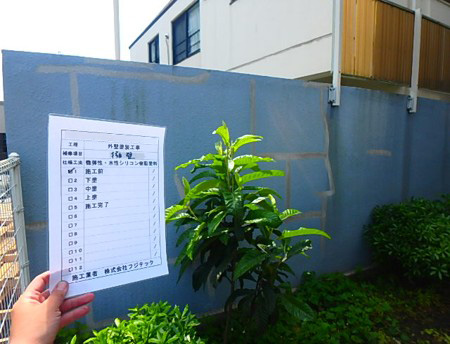 工程 外壁塗装工事
補修項目 擁壁
仕様工法 微弾性・水性シリコン樹脂塗料
1 施工前
2 下塗
3 中塗
4 上塗
5 施工完了
6
7
8
9
10
11
12
施工業者 株式会社フジテック